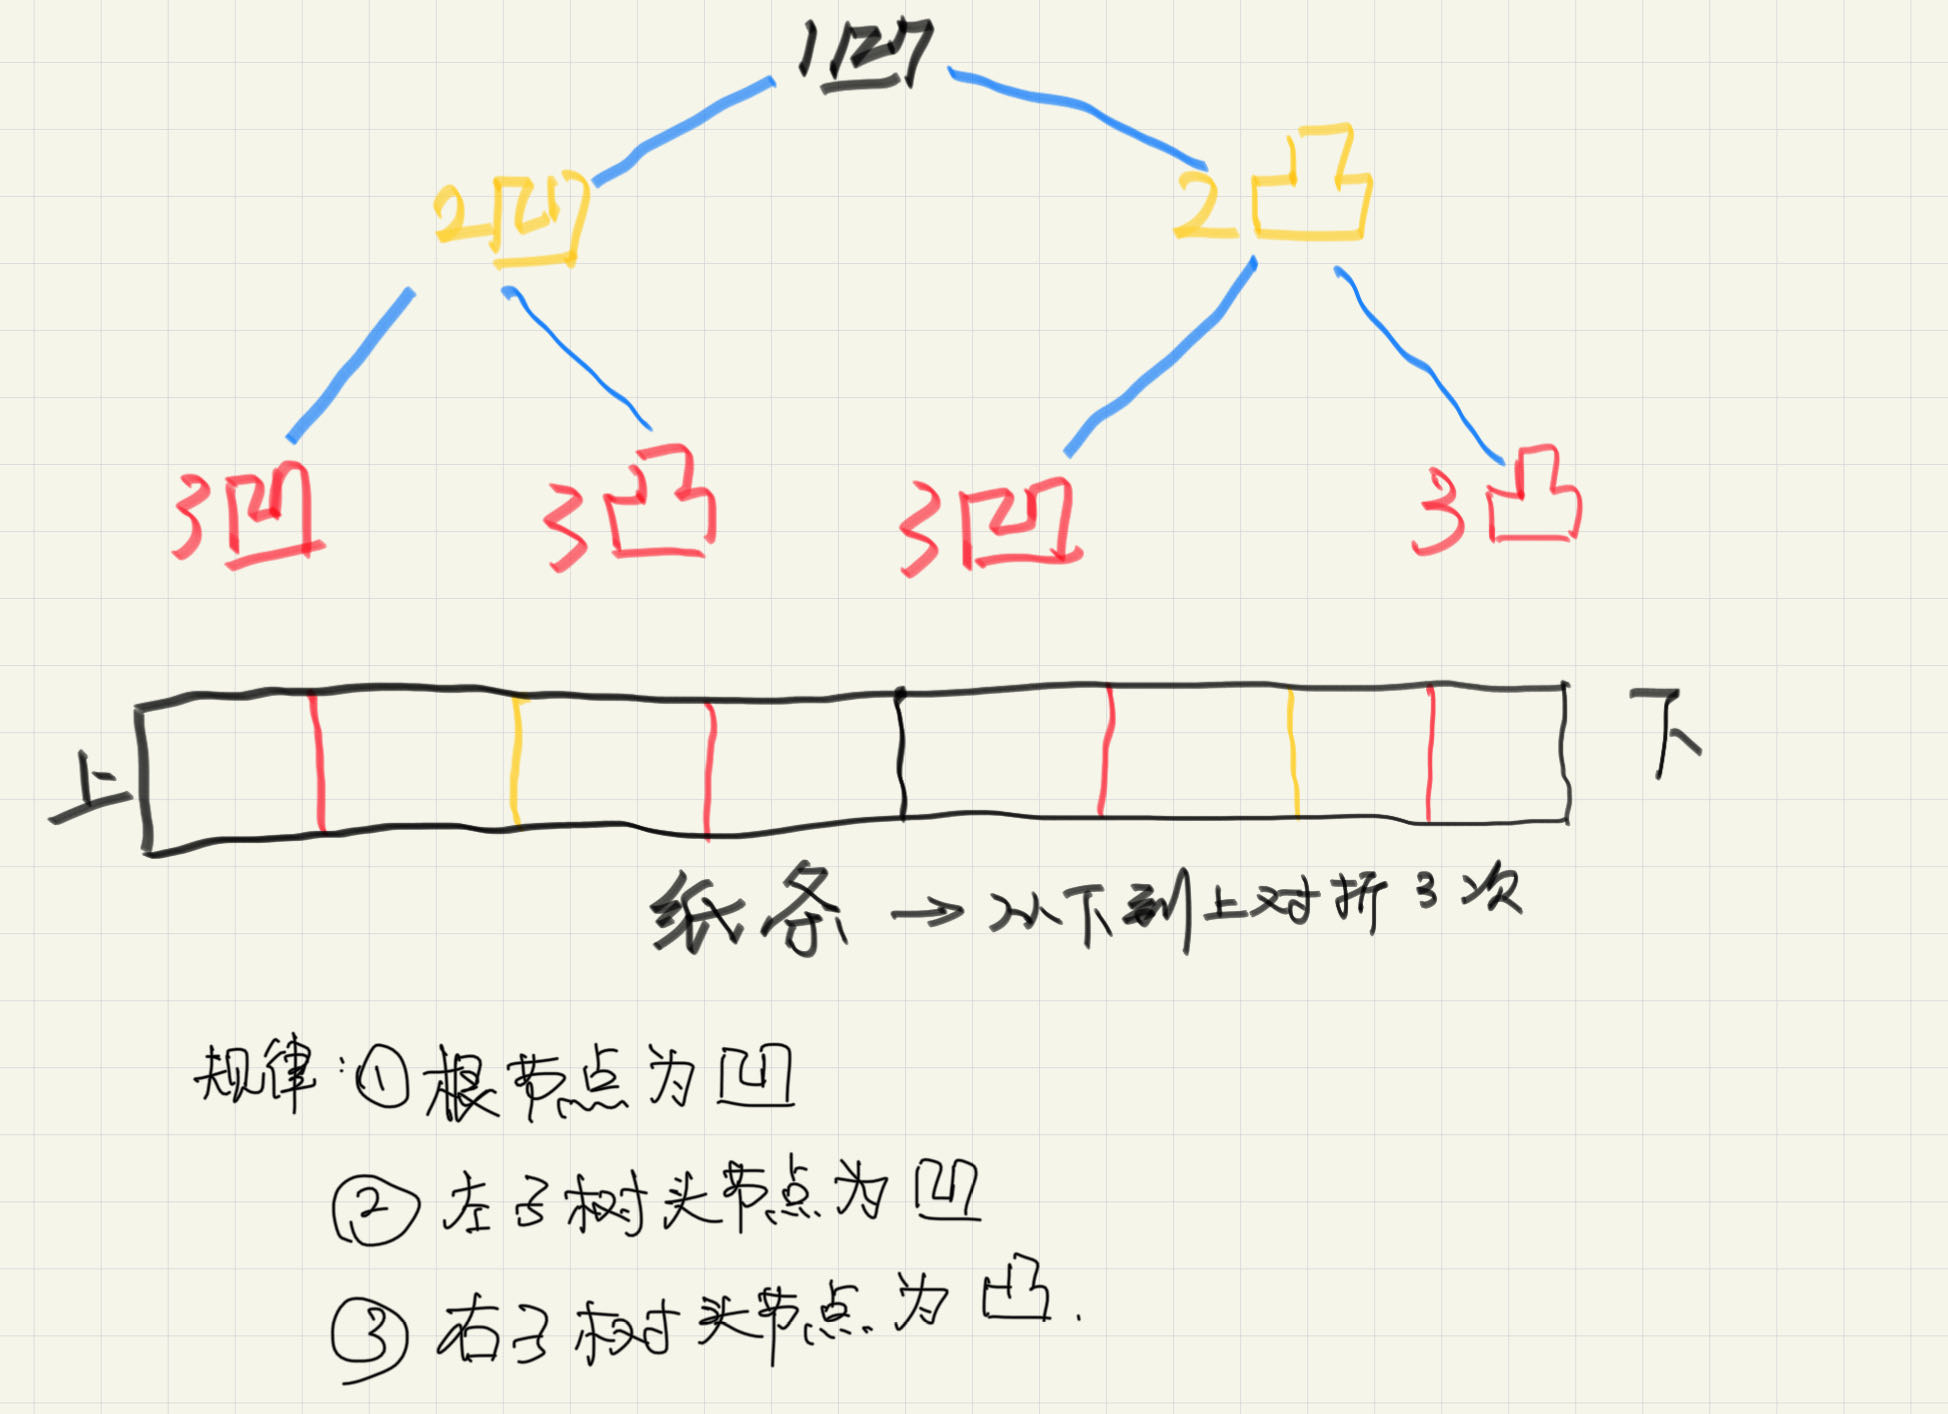 1凹
2凹 2凸
3凹 3凸 3凹 3凸
上 下
纸条 → 从下到上对折3次
规律:①根节点为凹
②左子树头节点为凹
③右子树头节点为凸.